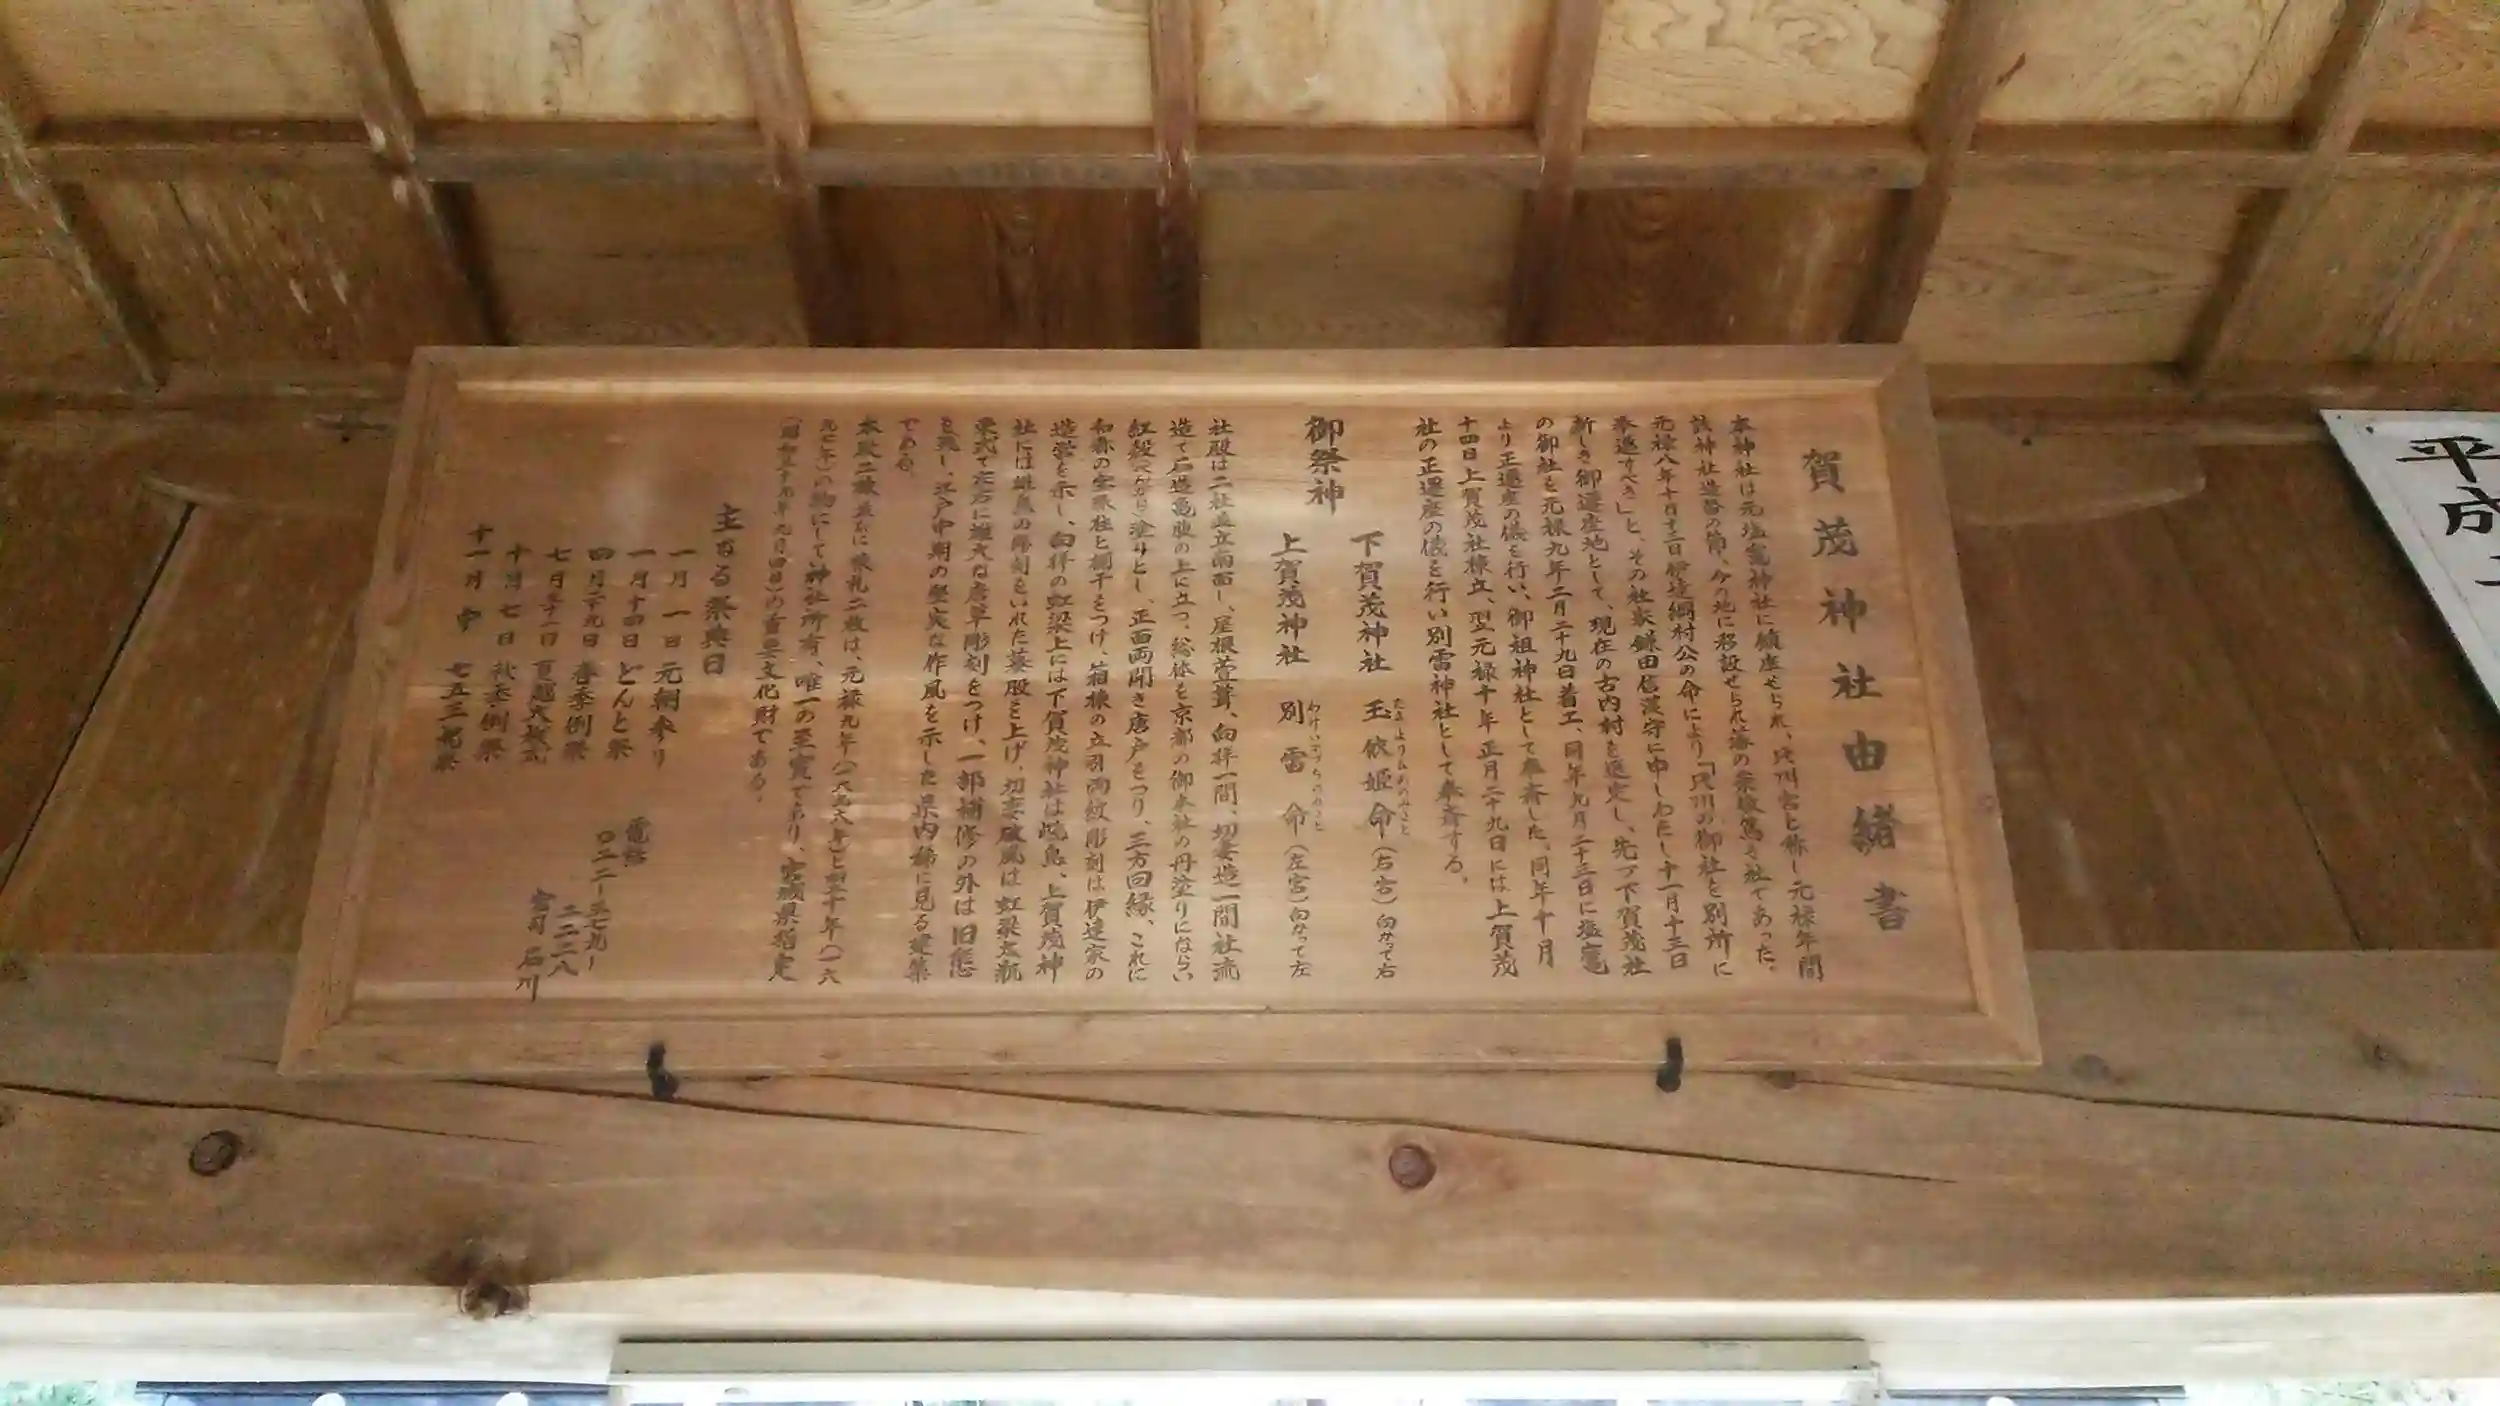 賀茂神社由緒書
本神社は元塩竈神社に鎮座せられ、只川宮と称し元禄年間
該神社造営の節、今の地に移設せられ藩の崇敬篤き社であった。
元禄八年十月十三日伊達綱村公の命により「只川の御社を別所に
奉遷すべき」と、その社家鎌田信濃守に申しわたし十一月十三日
新しき御遷座地として、現在の古内村を選定し、先づ下賀茂社
の御社を元禄九年二月二十九日着工、同年九月二十三日に塩竈
より正遷座の儀を行い、御祖神社として奉斎した。同年十月
十四日上賀茂社棟立、翌元禄十年正月二十九日には上賀茂
社の正遷座の儀を行い別雷神社として奉斎する。
御祭神
下賀茂神社 玉依姫命(右宮)向かって右
上賀茂神社 別雷命(左宮)向かって左
社殿は二社並立南面し、屋根萱葺、向拝一間、切妻造一間社流
造で石造亀腹の上に立つ、総体を京都の御本社の丹塗りにならい
紅殻(べんがら)塗りとし、正面両開き唐戸をつり、三方回縁、これに
和番の宝珠柱と欄干をつけ、箱棟の立引両紋彫刻は伊達家の
造営を示し、向拝の虹梁上には下賀茂神社は鳳鳥、上賀茂神
社には雄鳥の彫刻をいれた蟇股を上げ、切妻破風は虹梁太瓶
束式で左右に雄大な唐草彫刻をつけ、一部補修の外は旧態
を残し、江戸中期の堅実な作風を示した県内稀に見る建築
である。
本殿二棟並に棟札二枚は、元禄九年(一六九六年)と翌十年(一六
九七年)の物にして神社所有、唯一の至宝であり、宮城県指定
(昭和三十九年九月四日)の重要文化財である。
主なる祭典日
一月 一日 元朝参り
一月十四日 どんと祭
四月二十九日 春季例祭
七月三十一日 夏越大祓式
十月 七日 秋季例祭
十一月 中 七五三祝祭
電話
〇二二ー三七九ー
二二二八
宮司 石川
平成